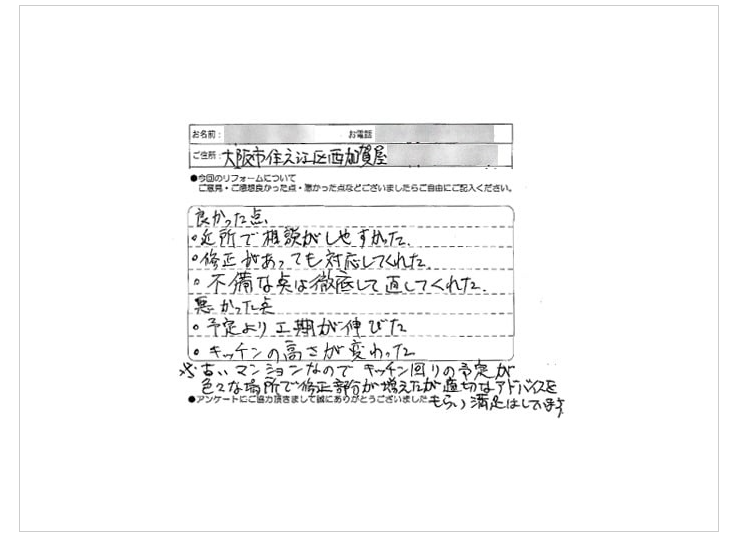 お名前: お電話
ご住所: 大阪市住之江区西加賀屋
●今回のリフォームについて
ご意見・ご感想良かった点・悪かった点などございましたらご自由にご記入ください。
良かった点、
・近所で相談がしやすかった。
・修正があっても対応してくれた。
・不備な点は徹底して直してくれた。
悪かった点
・予定より工期が伸びた
・キッチンの高さが変わった
※古いマンションなのでキッチン回りの予定が
色々な場所で修正部分が増えたが適切なアドバイスを
もらい満足はしています
●アンケートにご協力頂きまして誠にありがとうございました